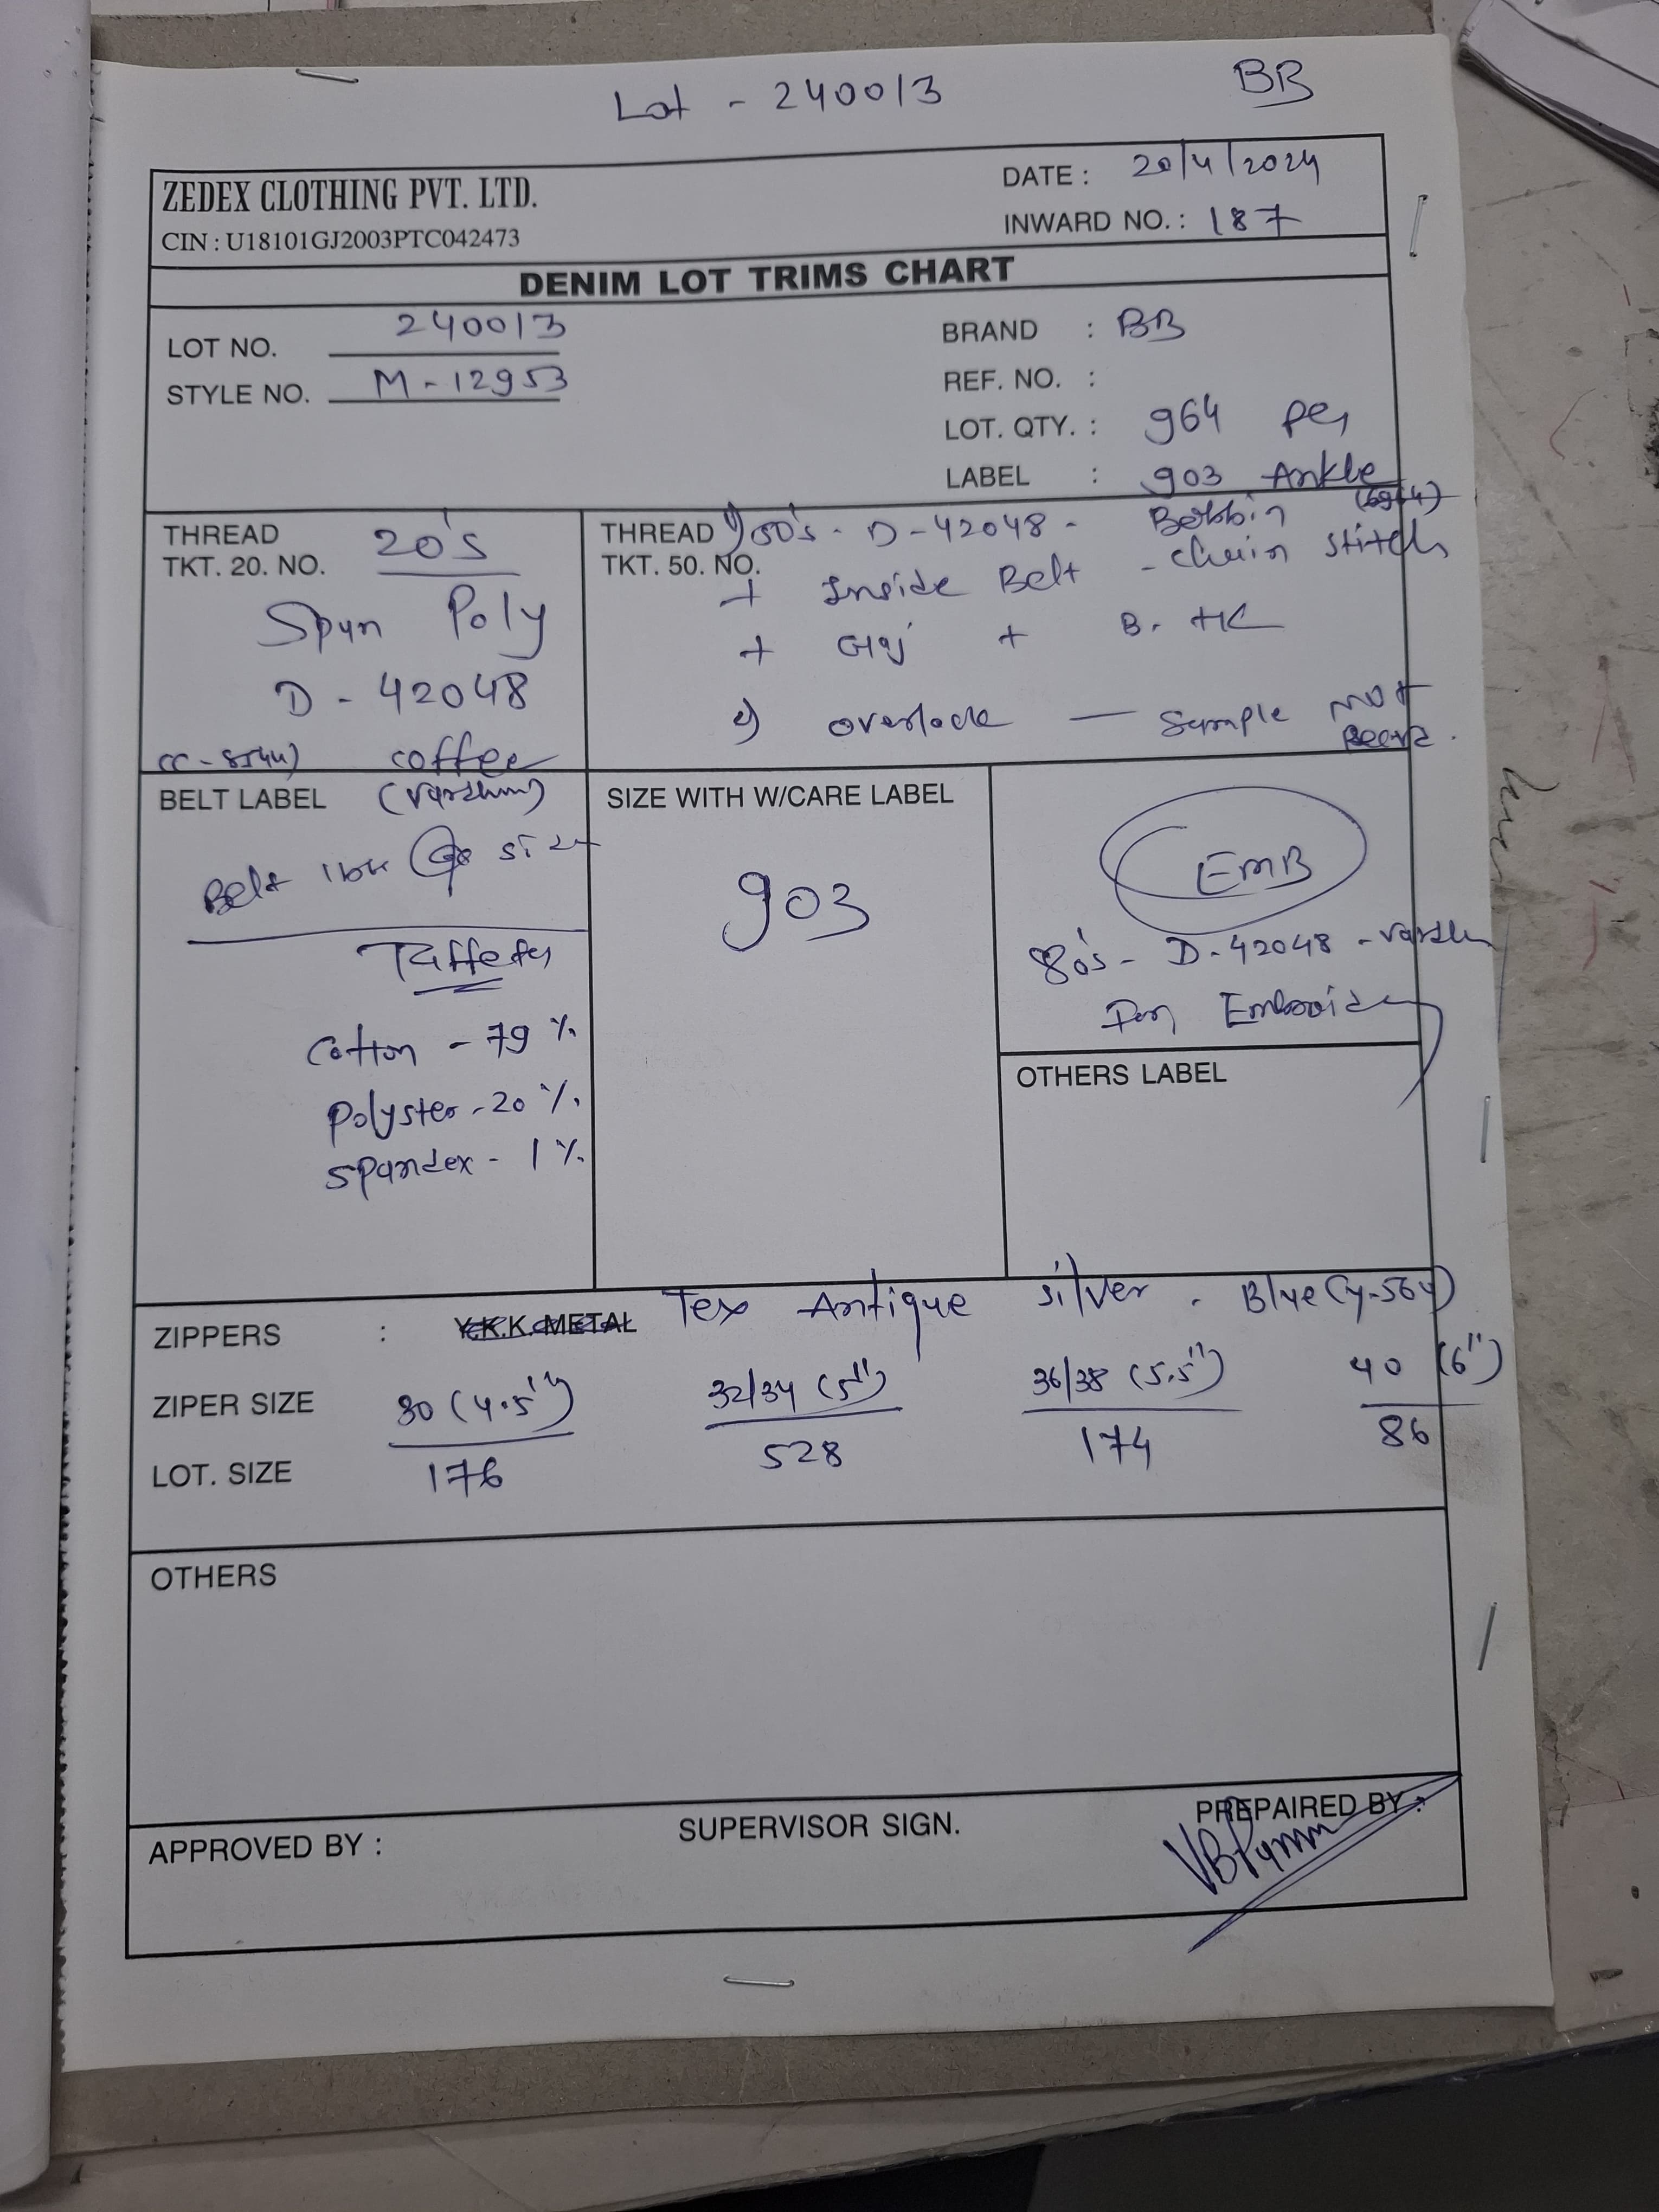 Lot - 240013 BB
ZEDEX CLOTHING PVT. LTD.
CIN : U18101GJ2003PTC042473
DATE : 20/4/2024
INWARD NO. : 187
DENIM LOT TRIMS CHART
LOT NO. 240013
STYLE NO. M-12953
BRAND : BB
REF. NO. :
LOT. QTY. : 964
LABEL : 903 Ankle
THREAD
TKT. 20. NO. 20's
Spun Poly
D - 42048
coffee
THREAD
TKT. 50. NO.
50's - D-42048 - Bobbin
+ Inside Belt - chain stitch
+ + B. HK
overlock — Sample not
BELT LABEL
Belt size
Taffeta
Cotton - 79 %
Polyster - 20 %
Spandex - 1 %
SIZE WITH W/CARE LABEL
903
EMB
80's - D-42048
For
OTHERS LABEL
ZIPPERS : Y.K.K. METAL Tex Antique silver - Blue (Y-564)
ZIPER SIZE 30 (4.5") 32/34 (5") 36/38 (5.5") 40 (6")
LOT. SIZE 176 528 174 86
OTHERS
APPROVED BY :
SUPERVISOR SIGN.
PREPAIRED BY :